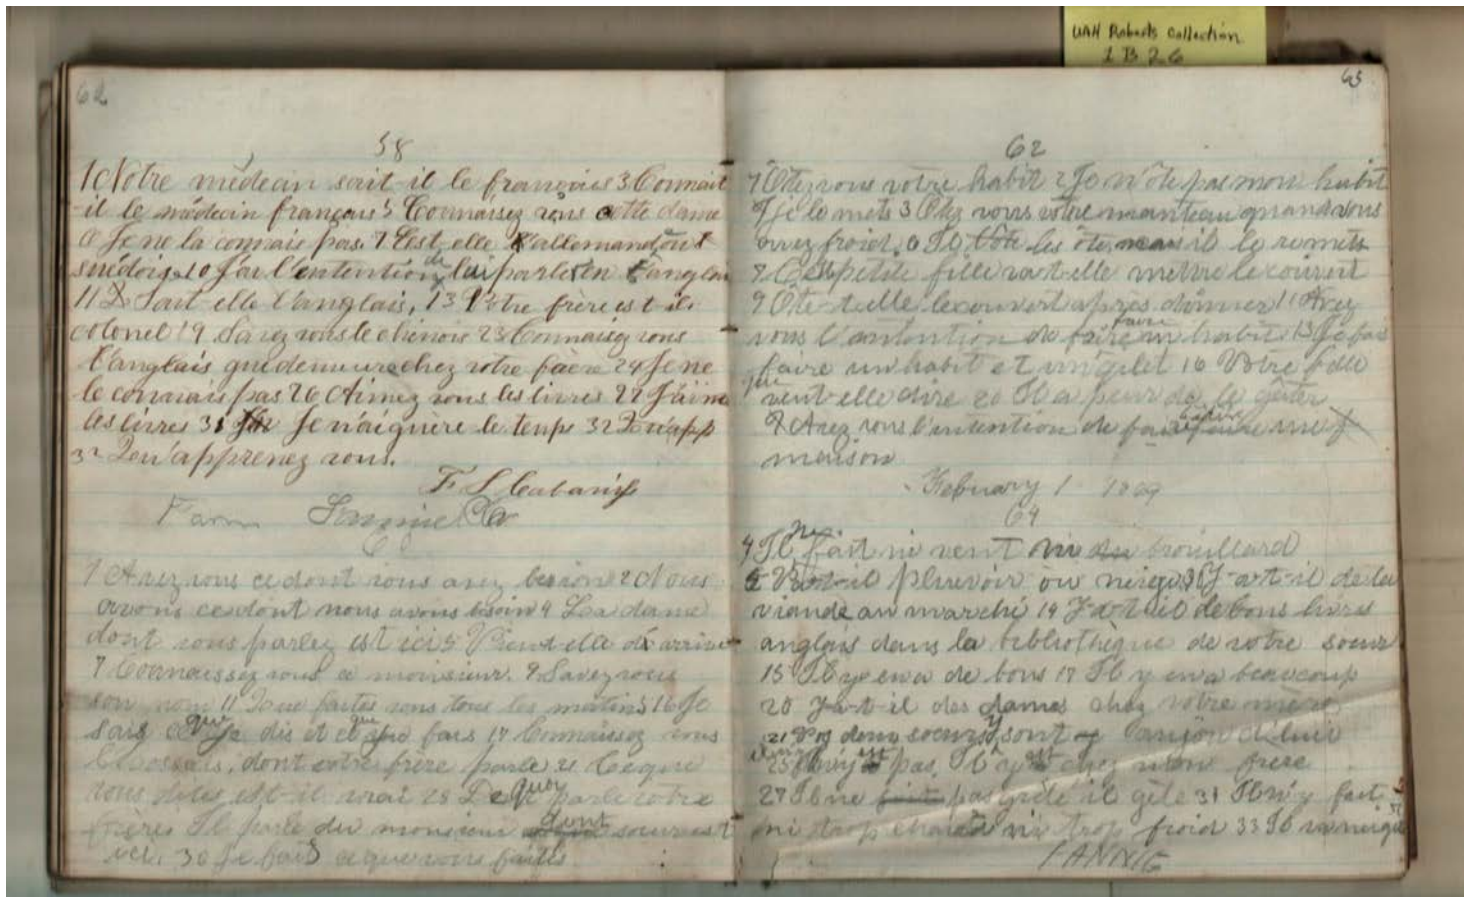 UAH Roberts Collection
1 B 26
62
58
1 Notre médecin sait-il le français 3 Connait
-il le médecin français 5 Connaissez vous cette dame
6 Je ne la connais pas 7 Est elle allemand ou
suédois 10 J'ai l'entention de lui parler en anglais
11 Sait elle l'anglais, 13 Votre frère est il
colonel 19 Savez vous le chinois 23 Connaissez vous
l'anglais qui demeure chez votre frère 24 Je ne
le connais pas 26 Aimez vous les livres 27 J'aime
les livres 31 Je n'aiguère le temps 32 Qu'app
32 Qu'apprenez vous.
F L Cabaniss
Fannie
1 Avez vous ce dont vous avez besoin 2 Nous
avons ce dont nous avons besoin 4 La dame
dont vous parlez est ici 5 Vient elle d'arriver
7 Connaissez vous ce monsieur. 9 Savez vous
son nom 11 Que faites vous tous les matins 16 Je
sais ce que je dis et ce que je fais 17 Connaissez vous
l'ecossais, dont votre frère parle 21 Ce que
vous dites est-il vrai 28 De quoi parle votre
frères Il parle du monsieur dont soeur est
ici. 30 Je fais ce que vous faites
63
62
1 Otez vous votre habit 2 Je n'ôte pas mon habit
je le mets 3 Otez vous votre manteau quand vous
avez froid. 6 Il les ôte, mais il le remets
8 Cette petite fille va-t-elle mettre le couvert
9 Ote-t-elle le couvert apres dinner 11 Avez
vous l'entention de faire faire un habit 13 Je fais
faire un habit et un gilet 16 Votre fille
que veut-elle dire 20 Il a peur de le gâter
Avez vous l'intention de faire une
maison
February 1 1869
64
4 Il ne fait ni vent ni brouillard
5 Va-t-il pleuvoir ou neiger 9 Y-a-t-il de la
viande au marché 14 Y-a-t-il de bons livres
anglais dans la bibliothèque de votre soeur
15 Il y en a de bons 17 Il y en a beaucoup
20 Y-a-t-il des dames chez votre mère
21 Vos deux soeurs y sont
pas, Il y est chez mon frère
27 Il ne pas grêle il gèle 31 Il n'y fait
ni trop chaud ni trop froid 33 Il va neiger
FANNIE